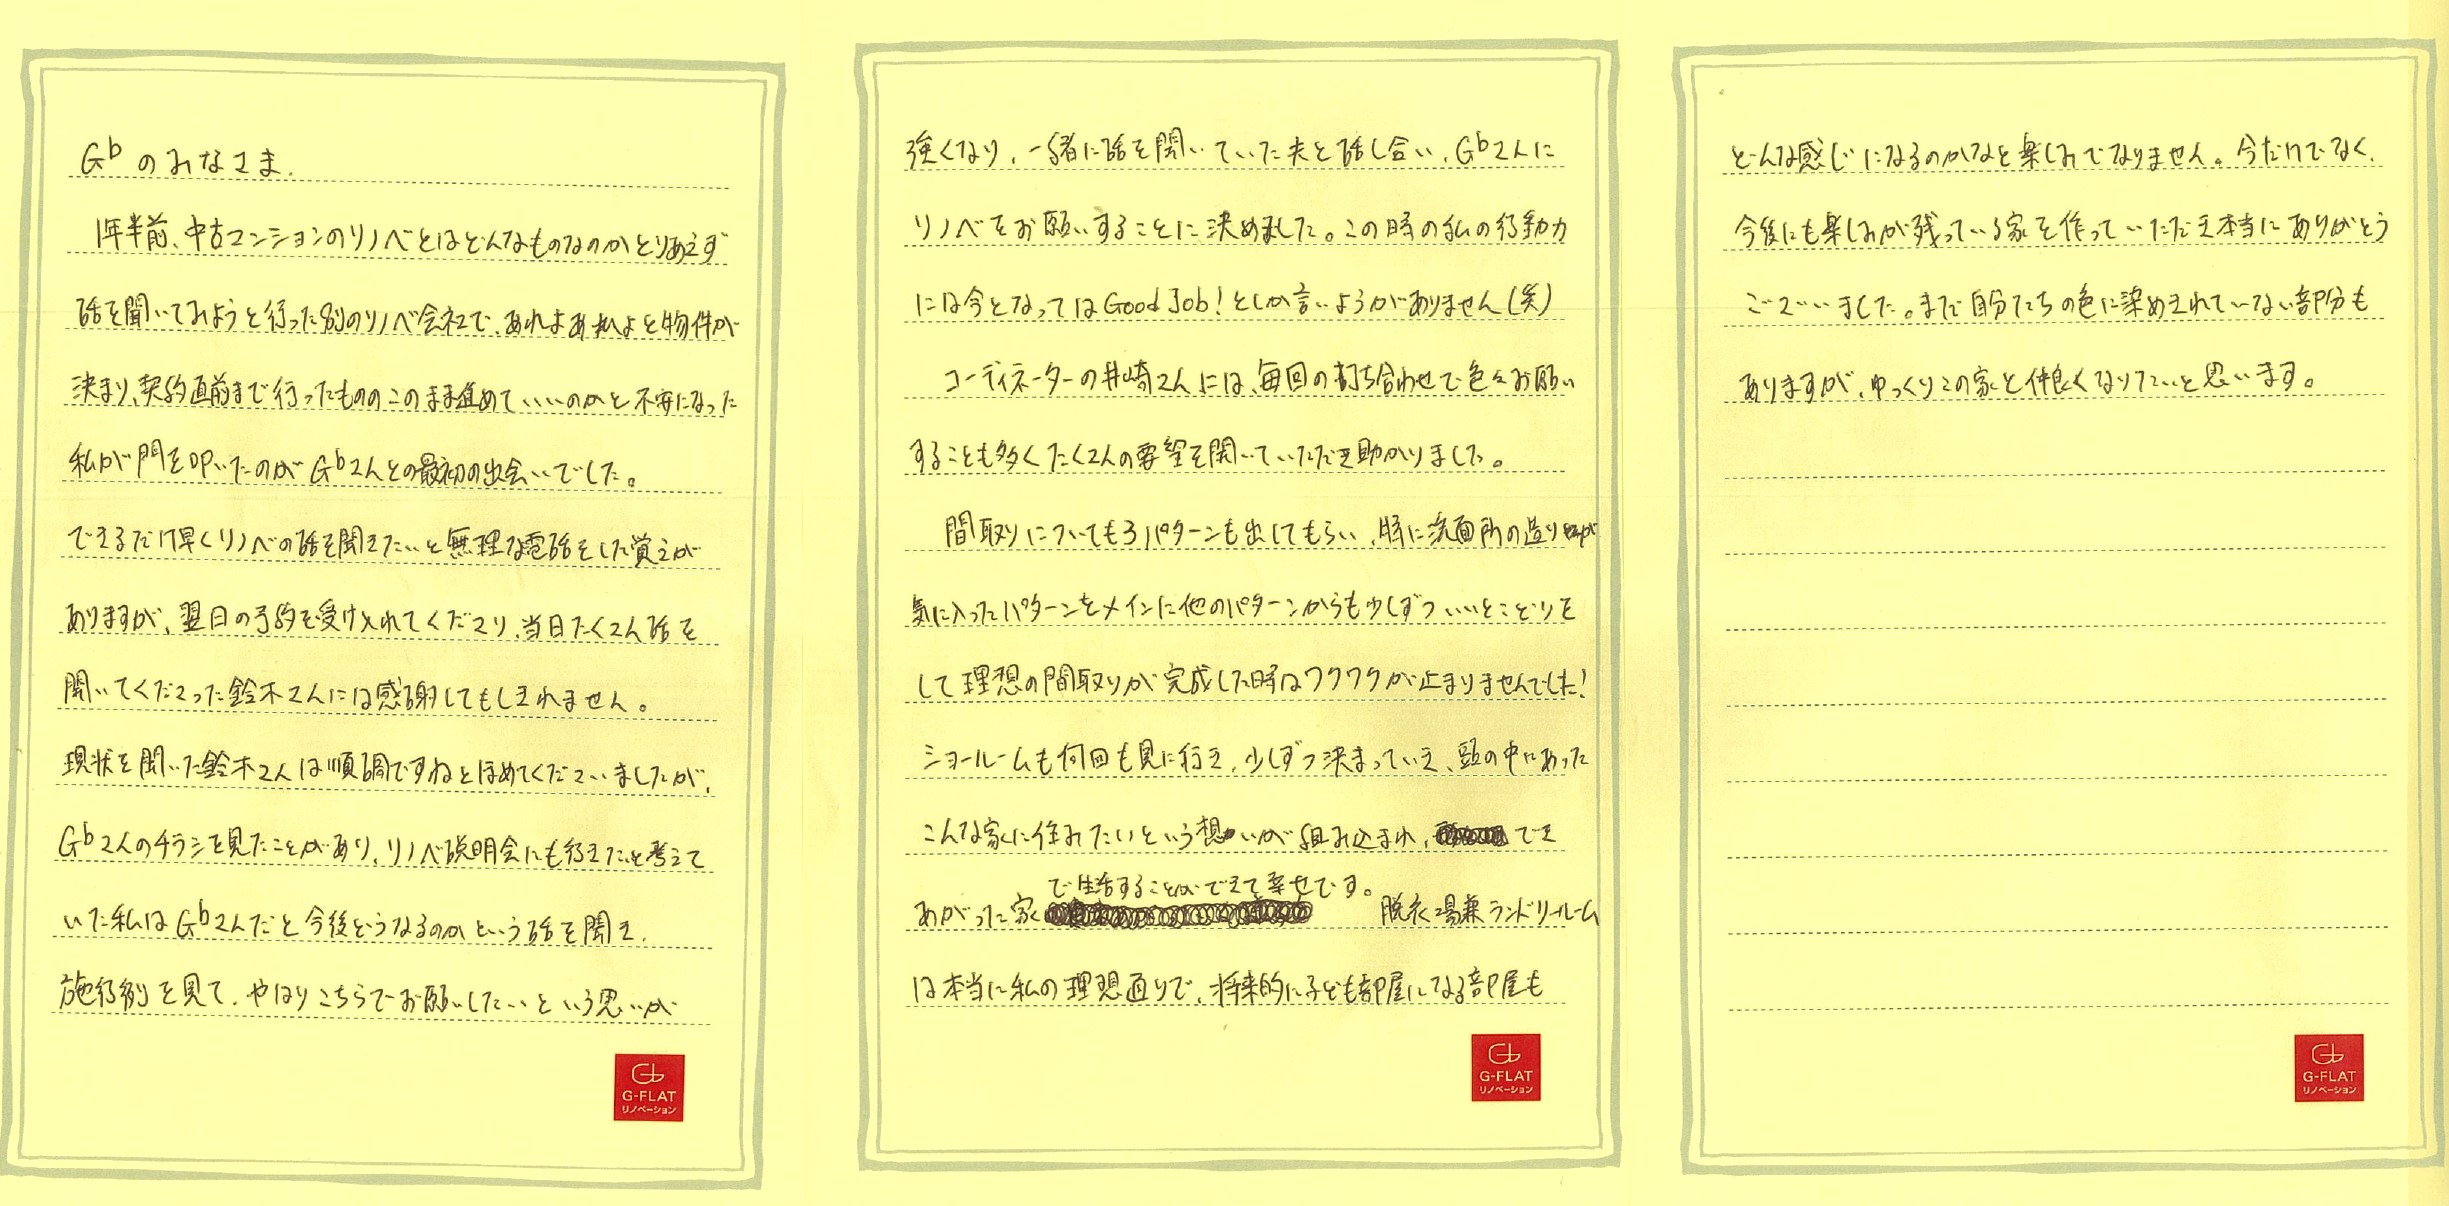 G♭のみなさま、
1年半前、中古マンションのリノベとはどんなものなのかとりあえず
話を聞いてみようと行った別のリノベ会社で、あれよあれよと物件が
決まり、契約直前まで行ったもののこのまま進めていいのかと不安になった
私が門を叩いたのがG♭さんとの最初の出会いでした。
できるだけ早くリノベの話を聞きたいと無理な電話をした覚えが
ありますが、翌日の予約を受け入れてくださり、当日たくさん話を
聞いてくださった鈴木さんには感謝してもしきれません。
現状を聞いた鈴木さんは順調ですねとほめてくださいましたが、
G♭さんのチラシを見たことがあり、リノベ説明会にも行きたいと考えて
いた私はG♭さんだと今後どうなるのかという話を聞き、
施行例を見て、やはりこちらでお願いしたいという思いが
G♭
G-FLAT
リノベーション
強くなり、一緒に話を聞いていた夫と話し合い、G♭さんに
リノベをお願いすることに決めました。この時の私の行動力
には今となってはGood Job!としか言いようがありません(笑)
コーディネーターの井崎さんには、毎回の打ち合わせで色々お願い
することも多くたくさんの要望を聞いていただき助かりました。
間取りについても3パターンも出してもらい、特に洗面所の造りが
気に入ったパターンをメインに他のパターンからも少しずついいとこどりを
して理想の間取りが完成した時はワクワクが止まりませんでした!
ショールームも何回も見に行き、少しずつ決まっていき、頭の中にあった
こんな家に住みたいという想いが組み込まれ、でき
あがった家で生活することができて幸せです。脱衣場兼ランドリールーム
は本当に私の理想通りで、将来的に子ども部屋になる部屋も
G♭
G-FLAT
リノベーション
どんな感じになるのかなと楽しみでなりません。今だけでなく、
今後にも楽しみが残っている家を作っていただき本当にありがとう
ございました。まだ自分たちの色に染めきれていない部分も
ありますが、ゆっくりこの家と仲良くなりたいと思います。
G♭
G-FLAT
リノベーション